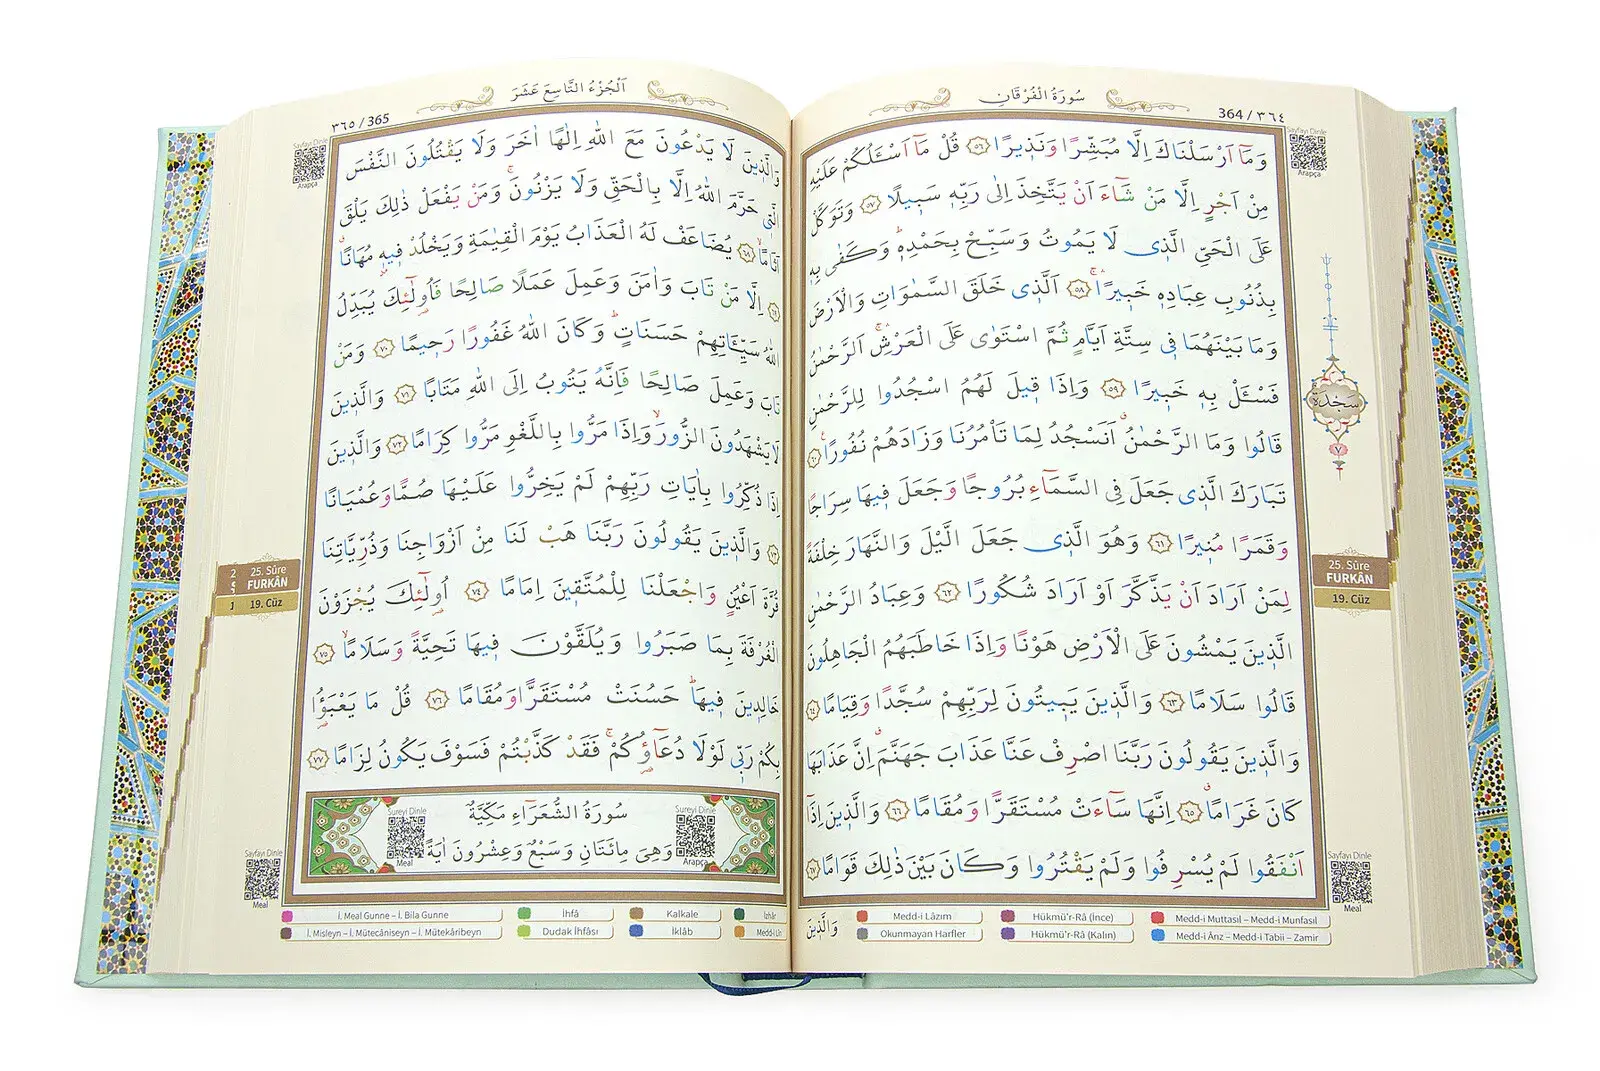 سُورَةُ الْفُرْقَانِ
364 / ٣٦٤
Sayfayı Dinle
Arapça
وَمَٓا اَرْسَلْنَاكَ اِلَّا مُبَشِّرًا وَنَذ۪يرًا ﴿٥٦﴾ قُلْ مَٓا اَسْـَٔلُكُمْ عَلَيْهِ
مِنْ اَجْرٍ اِلَّا مَنْ شَٓاءَ اَنْ يَتَّخِذَ اِلٰى رَبِّه۪ سَب۪يلًا ﴿٥٧﴾ وَتَوَكَّلْ
عَلَى الْحَيِّ الَّذ۪ي لَا يَمُوتُ وَسَبِّحْ بِحَمْدِه۪ۜ وَكَفٰى بِه۪
بِذُنُوبِ عِبَادِه۪ خَب۪يرًاۚ ﴿٥٨﴾ اَلَّذ۪ي خَلَقَ السَّمٰوَاتِ وَالْاَرْضَ
وَمَا بَيْنَهُمَا ف۪ي سِتَّةِ اَيَّامٍ ثُمَّ اسْتَوٰى عَلَى الْعَرْشِۚ اَلرَّحْمٰنُ
فَسْـَٔلْ بِه۪ خَب۪يرًا ﴿٥٩﴾ وَاِذَا ق۪يلَ لَهُمُ اسْجُدُوا لِلرَّحْمٰنِ
قَالُوا وَمَا الرَّحْمٰنُۗ اَنَسْجُدُ لِمَا تَأْمُرُنَا وَزَادَهُمْ نُفُورًا ﴿٦٠﴾
تَبَارَكَ الَّذ۪ي جَعَلَ فِي السَّمَٓاءِ بُرُوجًا وَجَعَلَ ف۪يهَا سِرَاجًا
وَقَمَرًا مُن۪يرًا ﴿٦١﴾ وَهُوَ الَّذ۪ي جَعَلَ الَّيْلَ وَالنَّهَارَ خِلْفَةً
لِمَنْ اَرَادَ اَنْ يَذَّكَّرَ اَوْ اَرَادَ شُكُورًا ﴿٦٢﴾ وَعِبَادُ الرَّحْمٰنِ
الَّذ۪ينَ يَمْشُونَ عَلَى الْاَرْضِ هَوْنًا وَاِذَا خَاطَبَهُمُ الْجَاهِلُونَ
قَالُوا سَلَامًا ﴿٦٣﴾ وَالَّذ۪ينَ يَب۪يتُونَ لِرَبِّهِمْ سُجَّدًا وَقِيَامًا ﴿٦٤﴾
وَالَّذ۪ينَ يَقُولُونَ رَبَّنَا اصْرِفْ عَنَّا عَذَابَ جَهَنَّمَۗ اِنَّ عَذَابَهَا
كَانَ غَرَامًاۗ ﴿٦٥﴾ اِنَّهَا سَٓاءَتْ مُسْتَقَرًّا وَمُقَامًا ﴿٦٦﴾ وَالَّذ۪ينَ اِذَٓا
اَنْفَقُوا لَمْ يُسْرِفُوا وَلَمْ يَقْتُرُوا وَكَانَ بَيْنَ ذٰلِكَ قَوَامًا ﴿٦٧﴾
وَالَّذ۪ينَ
سَجْدَة
٧
25. Sûre
FURKÂN
19. Cüz
Sayfayı Dinle
Meal
Medd-i Lâzım
Hükmü'r-Râ (İnce)
Medd-i Muttasıl – Medd-i Munfasıl
Okunmayan Harfler
Hükmü'r-Râ (Kalın)
Medd-i Ârız – Medd-i Tabii – Zamir
اَلْجُزْءُ التَّاسِعَ عَشَرَ
٣٦٥ / 365
Sayfayı Dinle
Arapça
وَالَّذ۪ينَ لَا يَدْعُونَ مَعَ اللّٰهِ اِلٰهًا اٰخَرَ وَلَا يَقْتُلُونَ النَّفْسَ
الَّت۪ي حَرَّمَ اللّٰهُ اِلَّا بِالْحَقِّ وَلَا يَزْنُونَۚ وَمَنْ يَفْعَلْ ذٰلِكَ يَلْقَ
اَثَامًاۙ ﴿٦٨﴾ يُضَاعَفْ لَهُ الْعَذَابُ يَوْمَ الْقِيٰمَةِ وَيَخْلُدْ ف۪يه۪ مُهَانًاۗ
﴿٦٩﴾ اِلَّا مَنْ تَابَ وَاٰمَنَ وَعَمِلَ عَمَلًا صَالِحًا فَاُو۬لٰٓئِكَ يُبَدِّلُ
اللّٰهُ سَيِّـَٔاتِهِمْ حَسَنَاتٍۜ وَكَانَ اللّٰهُ غَفُورًا رَح۪يمًا ﴿٧٠﴾ وَمَنْ
تَابَ وَعَمِلَ صَالِحًا فَاِنَّهُ يَتُوبُ اِلَى اللّٰهِ مَتَابًا ﴿٧١﴾ وَالَّذ۪ينَ
لَا يَشْهَدُونَ الزُّورَۙ وَاِذَا مَرُّوا بِاللَّغْوِ مَرُّوا كِرَامًا ﴿٧٢﴾ وَالَّذ۪ينَ
اِذَا ذُكِّرُوا بِاٰيَاتِ رَبِّهِمْ لَمْ يَخِرُّوا عَلَيْهَا صُمًّا وَعُمْيَانًا
﴿٧٣﴾ وَالَّذ۪ينَ يَقُولُونَ رَبَّنَا هَبْ لَنَا مِنْ اَزْوَاجِنَا وَذُرِّيَّاتِنَا
قُرَّةَ اَعْيُنٍ وَاجْعَلْنَا لِلْمُتَّق۪ينَ اِمَامًا ﴿٧٤﴾ اُو۬لٰٓئِكَ يُجْزَوْنَ
الْغُرْفَةَ بِمَا صَبَرُوا وَيُلَقَّوْنَ ف۪يهَا تَحِيَّةً وَسَلَامًاۙ ﴿٧٥﴾
خَالِد۪ينَ ف۪يهَاۜ حَسُنَتْ مُسْتَقَرًّا وَمُقَامًا ﴿٧٦﴾ قُلْ مَا يَعْبَؤُ۬ا
بِكُمْ رَبّ۪ي لَوْلَا دُعَٓاؤُ۬كُمْۚ فَقَدْ كَذَّبْتُمْ فَسَوْفَ يَكُونُ لِزَامًا ﴿٧٧﴾
سُورَةُ الشُّعَرَٓاءِ مَكِّيَّةٌ
وَهِيَ مِائَتَانِ وَسَبْعٌ وَعِشْرُونَ اٰيَةً
Sureyi Dinle
Meal
Sureyi Dinle
Arapça
25. Sûre
FURKÂN
19. Cüz
Sayfayı Dinle
Meal
İ. Meal Gunne – İ. Bila Gunne
İhfâ
Kalkale
İzhâr
İ. Misleyn – İ. Mütecâniseyn – İ. Mütekâribeyn
Dudak İhfâsı
İklâb
Medd-i Lîn